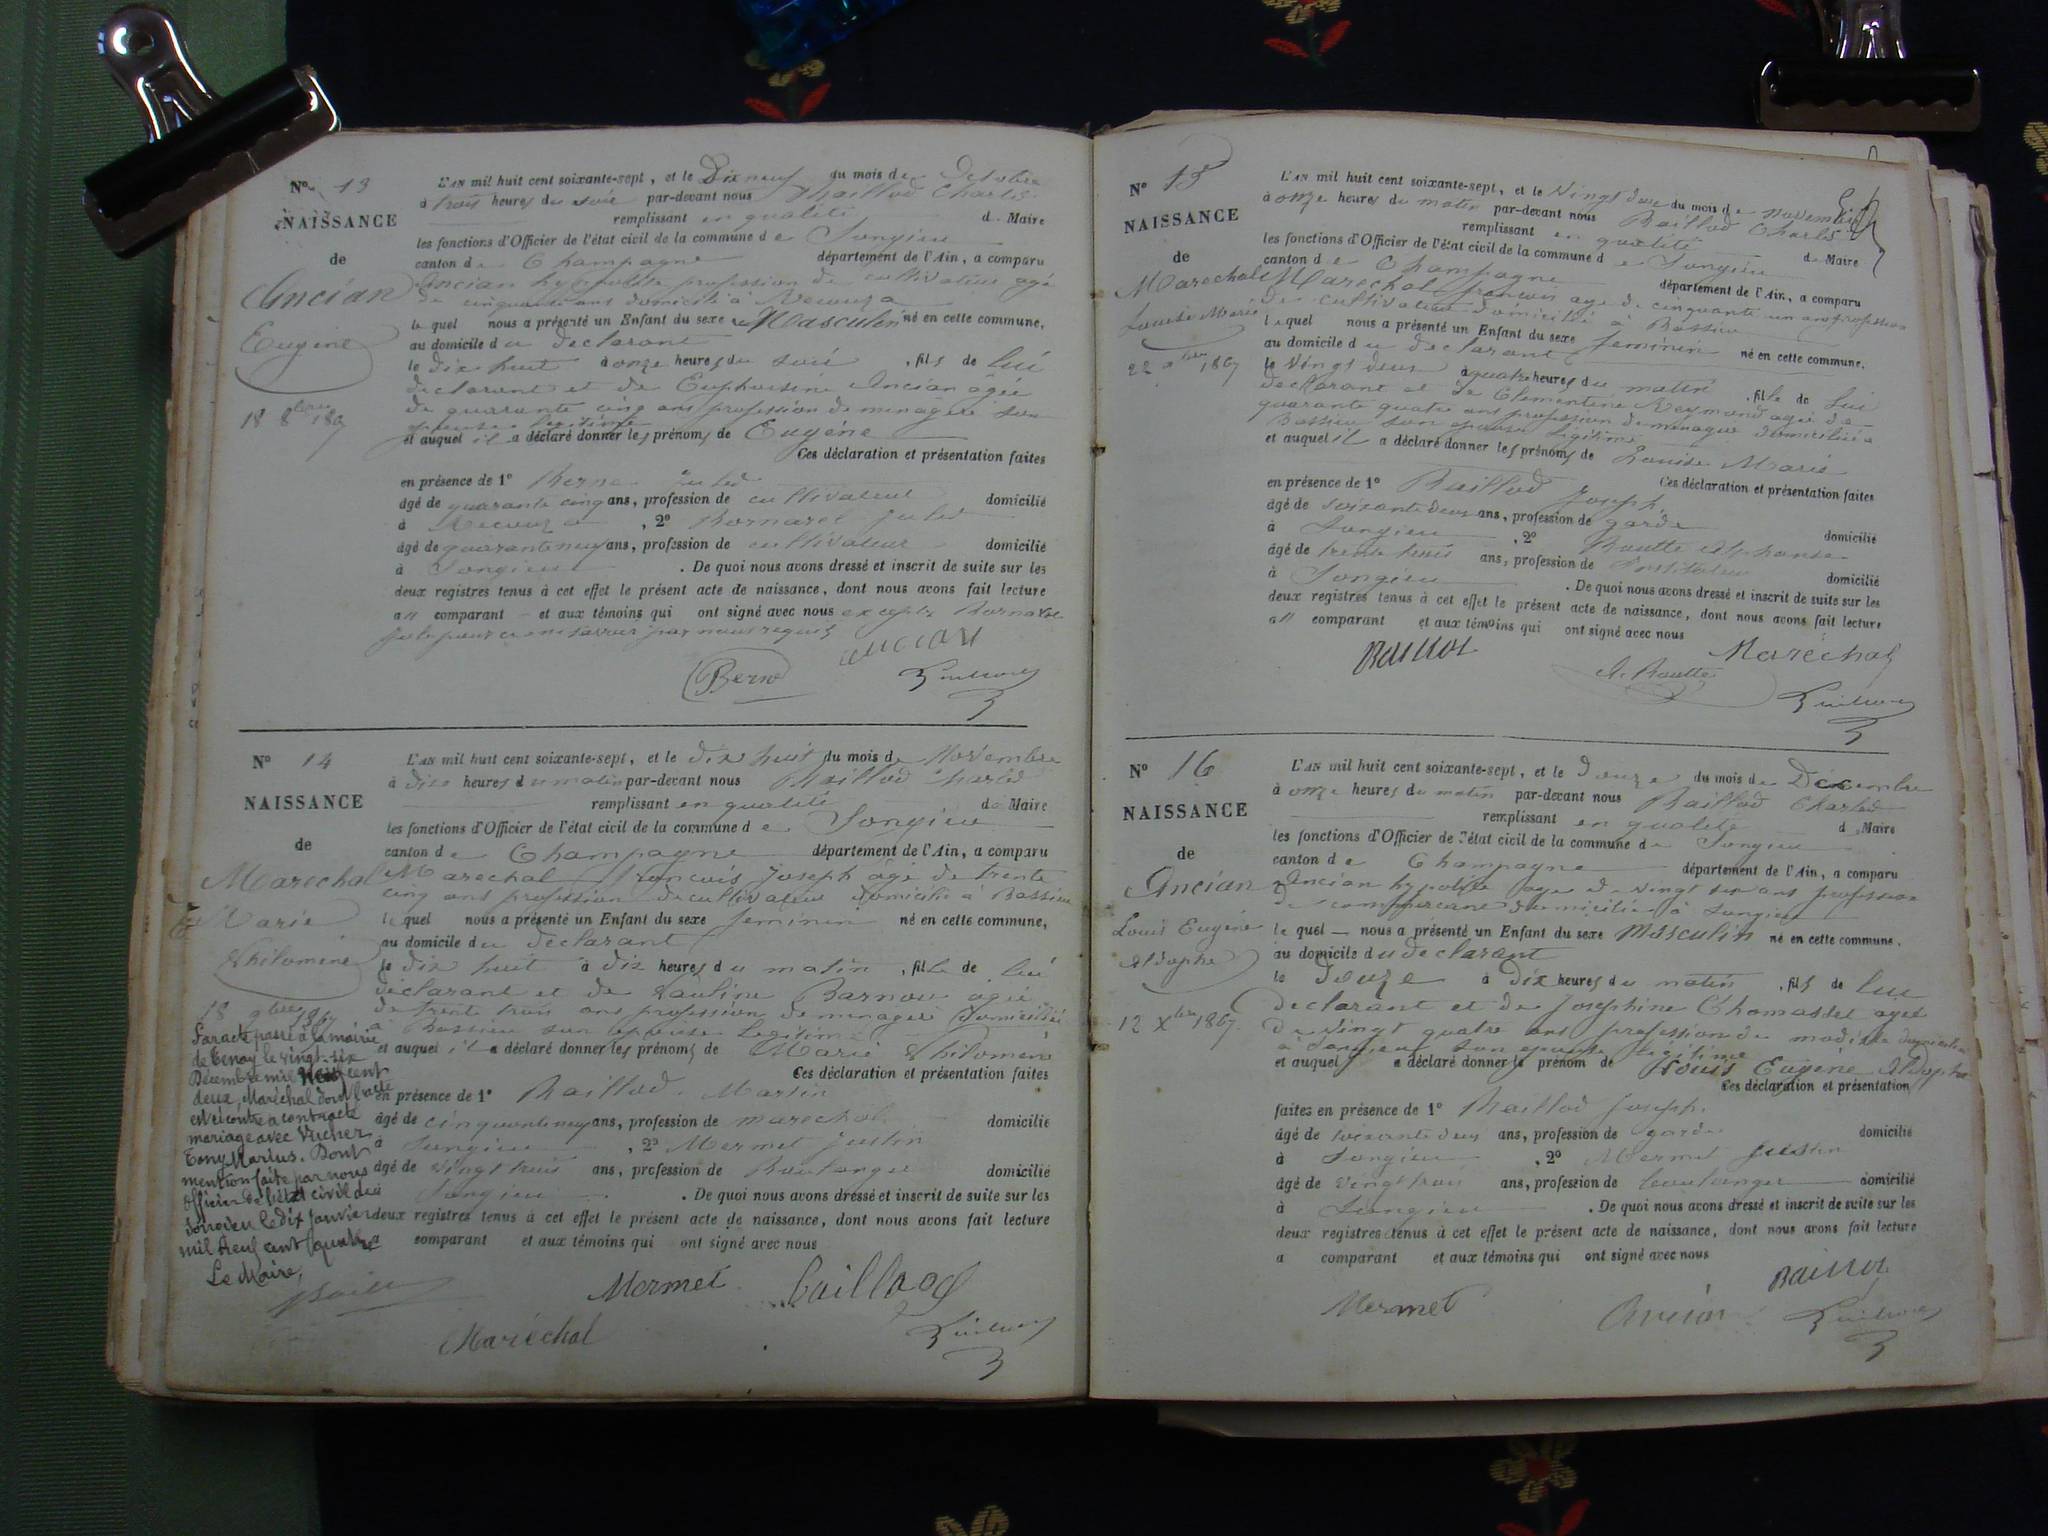 N° 13
NAISSANCE
de
Ancian
Eugène
18 8bre 1867
L'AN mil huit cent soixante-sept, et le Dix neuf du mois de Octobre
à trois heures du soir par-devant nous Baillod Charles
remplissant en qualité de Maire
les fonctions d'Officier de l'état civil de la commune de Songieu
canton de Champagne département de l'Ain, a comparu
Ancian hyppolite profession de cultivateur agé
de cinquante ans domicilié à
le quel nous a présenté un Enfant du sexe Masculin né en cette commune,
au domicile du declarant
le dix huit à onze heures du soir, fils de lui
declarant et de Euphrosine Ancian âgée
de quarante cinq ans profession de menagère son
epouse legitime
et auquel il a déclaré donner les prénoms de Eugène
Ces déclaration et présentation faites
en présence de 1° Berne Jules
âgé de quarante cinq ans, profession de cultivateur domicilié
à , 2° Bornarel Jules
âgé de quarante neuf ans, profession de cultivateur domicilié
à Songieu . De quoi nous avons dressé et inscrit de suite sur les
deux registres tenus à cet effet le présent acte de naissance, dont nous avons fait lecture
au comparant et aux témoins qui ont signé avec nous excepté Bornarel
Jules pour ne savoir par nous requis
Berne Ancian
N° 14
NAISSANCE
de
Marechal
Marie
Philomène
18 9bre 1867
L'AN mil huit cent soixante-sept, et le dix huit du mois de Novembre
à dix heures du matin par-devant nous Baillod Charles
remplissant en qualité de Maire
les fonctions d'Officier de l'état civil de la commune de Songieu
canton de Champagne département de l'Ain, a comparu
Marechal françois Joseph âgé de trente
cinq ans profession de cultivateur domicilié à Bassieu
le quel nous a présenté un Enfant du sexe feminin né en cette commune,
au domicile du declarant
le dix huit à dix heures du matin, fille de lui
declarant et de Pauline Barnou âgée
de trente trois ans profession de menagère domiciliée
à Bassieu son épouse legitime
et auquel il a déclaré donner les prénoms de Marie Philomène
Ces déclaration et présentation faites
en présence de 1° Baillod Martin
âgé de cinquante neuf ans, profession de marechal domicilié
à Songieu , 2° Mermet Justin
âgé de vingt trois ans, profession de Boulanger domicilié
à Songieu . De quoi nous avons dressé et inscrit de suite sur les
deux registres tenus à cet effet le présent acte de naissance, dont nous avons fait lecture
a comparant et aux témoins qui ont signé avec nous
Par acte passé à la mairie
de Tenay le vingt-six
Décembre mil neuf cent
deux, Maréchal dont l'acte
est ci contre a contracté
mariage avec Vucher
Tony Marius. Dont
mention faite par nous
Officier de l'état civil de
Songieu le dix Janvier
mil neuf cent quatre
Le Maire,
Mermet Baillod
Maréchal
N° 15
NAISSANCE
de
Marechal
Louise Marie
22 9bre 1867
L'AN mil huit cent soixante-sept, et le Vingt deux du mois de novembre
à onze heures du matin par-devant nous Baillod Charles
remplissant en qualité de Maire
les fonctions d'Officier de l'état civil de la commune de Songieu
canton de Champagne département de l'Ain, a comparu
Marechal françois age de cinquante un ans profession
de cultivateur domicilié à Bassieu
le quel nous a présenté un Enfant du sexe feminin né en cette commune.
au domicile du declarant
le Vingt deux à quatre heures du matin, fille de lui
declarant et de Clementine Reymond agée de
quarante quatre ans profession de menagère domiciliée à
Bassieu son epouse legitime
et auquel il a déclaré donner les prénoms de Louise Marie
Ces déclaration et présentation faites
en présence de 1° Baillod Joseph
âgé de soixante deux ans, profession de garde domicilié
à Songieu , 2° Boutte Alphonse
âgé de trente trois ans, profession de Instituteur domicilié
à Songieu . De quoi nous avons dressé et inscrit de suite sur les
deux registres tenus à cet effet le présent acte de naissance, dont nous avons fait lecture
au comparant et aux témoins qui ont signé avec nous
Baillod Maréchal
A. Boutte
N° 16
NAISSANCE
de
Ancian
Louis Eugène
Adolphe
12 Xbre 1867
L'AN mil huit cent soixante-sept, et le Douze du mois de Décembre
à onze heures du matin par-devant nous Baillod Charles
remplissant en qualité de Maire
les fonctions d'Officier de l'état civil de la commune de Songieu
canton de Champagne département de l'Ain, a comparu
Ancian hypolite age de vingt six ans profession
de commerçant domicilié à Songieu
le quel nous a présenté un Enfant du sexe Masculin né en cette commune.
au domicile du declarant
le Douze à Dix heures du matin, fils de lui
declarant et de Josephine Chomassel agée
de vingt quatre ans profession de modiste domiciliée
à Songieu son epouse legitime
et auquel a déclaré donner le prénom de Louis Eugène Adolphe
Ces déclaration et présentation
faites en présence de 1° Baillod Joseph
âgé de soixante deux ans, profession de garde domicilié
à Songieu , 2° Mermet Justin
âgé de vingt trois ans, profession de boulanger domicilié
à Songieu . De quoi nous avons dressé et inscrit de suite sur les
deux registres tenus à cet effet le présent acte de naissance, dont nous avons fait lecture
a comparant et aux témoins qui ont signé avec nous
Baillod
Mermet Ancian